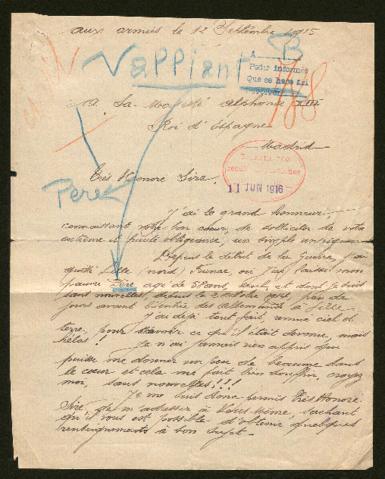 aux armées le 12 Septembre 1915
Vappiant
B
A
Poder informes
Que se hace así
A Sa Majesté Alphonse XIII
Roi d'Espagne
Madrid
11 JUN 1916
Très Honoré Sire,
Pere
J'ai le grand honneur,
connaissant votre bon cœur, de solliciter de votre
extrême et haute obligeance, un simple renseignement
Depuis le début de la Guerre, j'ai
quitté Lille (nord) France, où j'ai laissé mon
pauvre Père âgé de 58 ans, seul, et dont je suis
sans nouvelles depuis le 2 octobre 1914
jours avant l'entrée des Allemands à Lille.
J'ai déjà tout fait, remué ciel et
terre, pour savoir ce qu'il était devenu, mais
hélas! Je n'ai jamais rien appris qui
puisse me donner un peu de beaume dans
le cœur et cela me fait bien souffrir, croyez
moi, sans nouvelles!!!
Je me suis donc permis Très Honoré
Sire, de m'adresser à Vous même, sachant
qu'il vous est possible d'obtenir quelques
renseignements à son sujet.